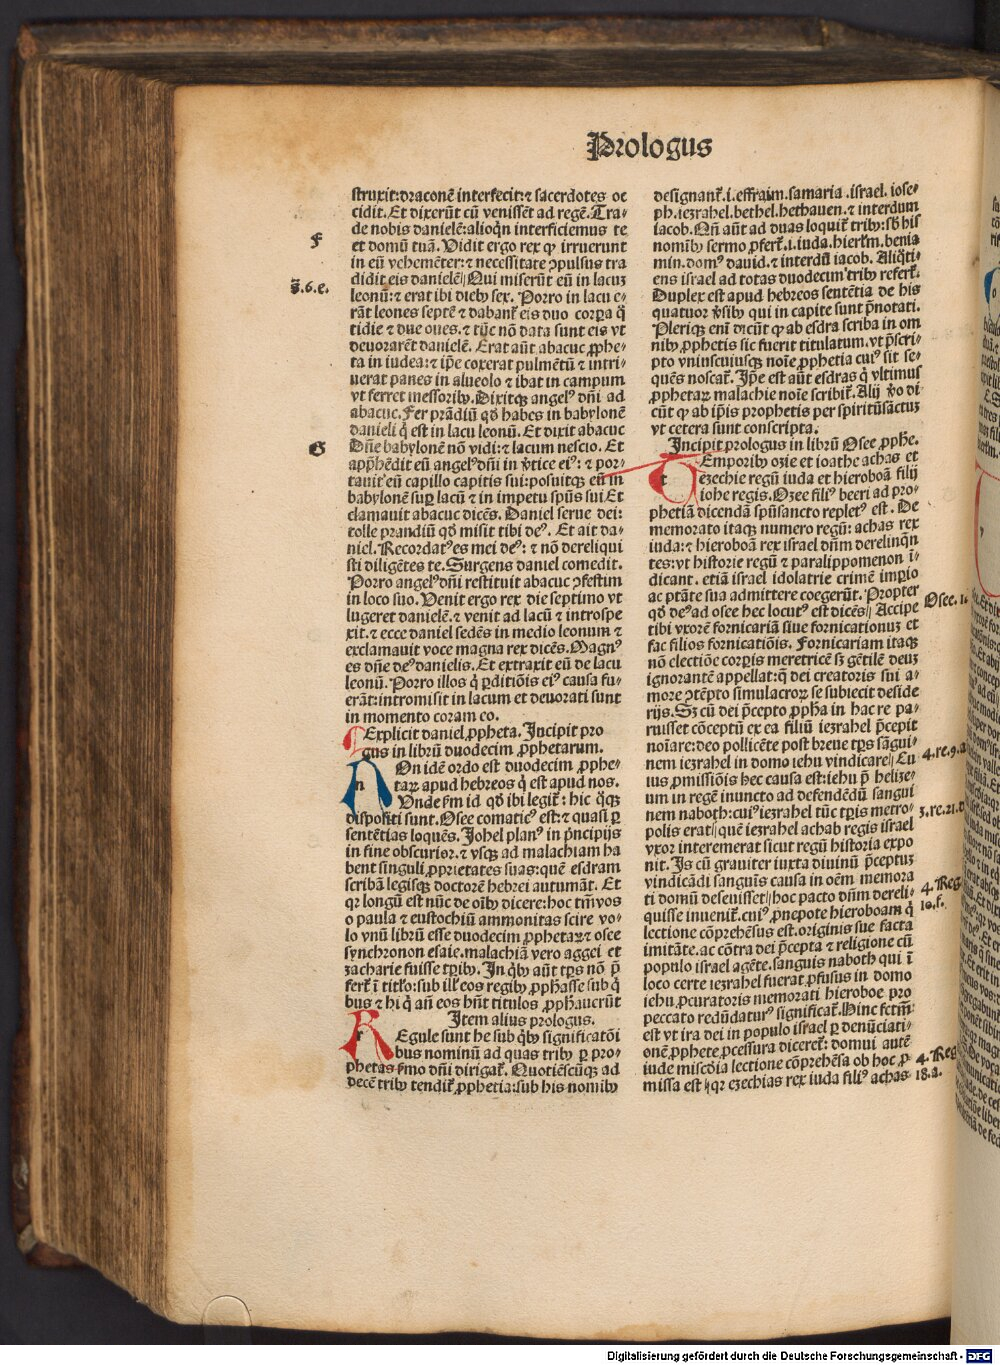 Prologus
struxit: draconē interfecit: ⁊ sacerdotes oc
cidit. Et dixerūt cū venissēt ad regē. Tra⸗
de nobis danielē: alioqn̄ interficiemus te
et domū tuā. Vidit ergo rex ꝙ irruerunt
in eū vehemēter: ⁊ necessitate ꝯpulsus tra
didit eis danielē || Qui miserūt eū in lacuꝫ
leonū: ⁊ erat ibi dieb᷒ sex. Porro in lacu e⸗
rāt leones septē ⁊ dabant᷑ eis duo corꝑa q̄
tidie ⁊ due oues. ⁊ tūc nō data sunt eis vt
deuorarēt danielē. Erat aūt abacuc ꝓphe⸗
ta in iudea: ⁊ ip̄e coxerat pulmētū ⁊ intri⸗
uerat panes in alueolo ⁊ ibat in campum
vt ferret messorib᷒. Dixitqꝫ angelꝰ dn̄i ad
abacuc. Fer prādiū qd̄ habes in babylonē
danieli q̄ est in lacu leonū. Et dixit abacuc
Dn̄e babylonē nō vidi: ⁊ lacum nescio. Et
app̄hēdit eū angelꝰ dn̄i in v̄tice eiꝰ: ⁊ por⸗
tauit eū capillo capitis sui: posuitqꝫ eū in
babylonē suꝑ lacū ⁊ in impetu sp̄us sui Et
clamauit abacuc dicēs. Daniel serue dei:
tolle prandiū qd̄ misit tibi deꝰ. Et ait da⸗
niel. Recordatꝰ es mei deꝰ: ⁊ nō dereliqui
sti diligētes te. Surgens daniel comedit.
Porro angelꝰ dn̄i restituit abacuc ꝯfestim
in loco suo. Venit ergo rex die septimo vt
lugeret danielē. ⁊ venit ad lacū ⁊ introspe
xit. ⁊ ecce daniel sedēs in medio leonum ⁊
exclamauit voce magna rex dicēs. Magnꝰ
es dn̄e deꝰ danielis. Et extraxit eū de lacu
leonū. Porro illos q̄ ꝑditiōis eiꝰ causa fu⸗
erāt: intromisit in lacum et deuorati sunt
in momento coram eo.
Explicit daniel ꝓpheta. Incipit pro
gus in librū duodecim ꝓphetarum.
NOn idē ordo est duodecim ꝓphe⸗
taꝝ apud hebreos q̄ est apud nos.
Vnde fm id qd̄ ibi legit᷑: hic q̄qꝫ
dispositi sunt. Osee comaticꝰ est: ⁊ quasi ꝑ
sentētias loquēs. Johel planꝰ in p̄ncipijs
in fine obscurior. ⁊ vsqꝫ ad malachiam ha
bent singuli ꝓprietates suas: quē esdram
scribā legisqꝫ doctorē hebrei autumāt. Et
qꝛ longū est nūc de oīb᷒ dicere: hoc tm̄ vos
o paula ⁊ eustochiū ammonitas scire vo⸗
lo vnū librū esse duodecim ꝓphetaꝝ: ⁊ osee
synchronon esaie. malachiā vero aggei et
zacharie fuisse tꝑib᷒. In q̄b᷒ aūt tꝑs nō p̄
fert᷑ ī titl̄o: sub ill̓ eos regib᷒ ꝓphasse sub q̄
bus ⁊ hi q̄ an̄ eos hn̄t titulos ꝓphauerūt
Item alius prologus.
REgule sunt he sub q̄b᷒ significatōi
bus nominū ad quas trib᷒ ꝑ pro⸗
phetas s̄mo dn̄i dirigat᷑. Quotiēscūqꝫ ad
decē trib᷒ tendit᷑ ꝓphetia: sub his nomib᷒
F
3.6.e.
G
designant᷑. i. effraim. samaria. israel. iose⸗
ph. iezrahel. bethel. bethauen. ⁊ interdum
iacob. Nn̄ aūt ad duas loquit᷑ trib᷒: sb̄ his
nomīb᷒ sermo ꝓfert᷑. i. iuda. hierl̄m. benia
min. domꝰ dauid. ⁊ interdū iacob. Aliq̄ti⸗
ens israel ad totas duodecim trib᷒ refert᷑.
Duplex est apud hebreos sentētia de his
quatuor v̄sib᷒ qui in capite sunt p̄notati.
Pleriqꝫ enī dicūt ꝙ ab esdra scriba in om
nib᷒ ꝓphetis sic fuerit titulatum. vt p̄scri⸗
pto vniuscuiusqꝫ noīe ꝓphetia cuiꝰ sit se⸗
quēs noscat᷑. Ip̄e est aūt esdras q̄ vltimus
ꝓphetaꝝ malachie noīe scribit᷑. Alij v̄o di⸗
cūt ꝙ ab ip̄is prophetis per spiritūsāctuꝫ
vt cetera sunt conscripta.
Incipit prologus in librū Osee ꝓphe.
TEmporib᷒ ozie et ioathe achas et
ezechie regū iuda et hieroboā filij
iohe regis. Ozee filiꝰ beeri ad pro⸗
phetiā dicendā spūsancto repletꝰ est. De
memorato itaqꝫ numero regū: achas rex
iuda: ⁊ hieroboā rex israel dn̄m derelinqn̄
tes: vt historie regū ⁊ paralippomenon ī⸗
dicant. etiā israel idolatrie crimē imꝑio
ac ptāte sua admittere coegerūt. Propter
qd̄ deꝰ ad osee hec locutꝰ est dicēs || Accipe
tibi vxorē fornicariā siue fornicationuꝫ et
fac filios fornicatiōis. Fornicariam itaqꝫ
nō electiōe corꝑis meretricē sꝫ gētilē deuꝫ
ignorantē appellat: q̄ dei creatoris sui a⸗
more ꝯtēpto simulacroꝝ se subiecit deside
rijs. Sꝫ cū dei p̄cepto ꝓpha in hac re pa⸗
ruisset cōceptū ex ea filiū iezrahel p̄cepit
noīare: deo pollicēte post breue tꝑs sāgui⸗
nem iezrahel in domo iehu vindicare || Cu
ius ꝓmissiōis hec causa est: iehu p̄ helize⸗
um in regē inuncto ad defendēdū sangui
nem naboth: cuiꝰ iezrahel tūc tꝑis metro⸗
polis erat || quē iezrahel achab regis israel
vxor interemerat sicut regū historia expo
nit. Is cū grauiter iuxta diuinū p̄ceptuꝫ
vindicādi sanguīs causa in oēm memora
ti domū deseuisset || hoc pacto dn̄m dereli⸗
quisse inuenit᷑. cuiꝰ ꝓnepote hieroboam q̄
lectione cōprehēsus est. originis sue facta
imitāte. ac cōtra dei p̄cepta ⁊ religione cū
populo israel agēte. sanguis naboth qui ī
loco certe iezrahel fuerat ꝓfusus in domo
iehu ꝓcuratoris memorati hieroboe pro
peccato redūdatur significat᷑. Hinc fctm̄
est vt ira dei in populo israel ꝑ denūciati⸗
onē ꝓphete ꝓcessura diceret᷑: domui autē
iude miscd̄ia lectione cōprehēsa ob hoc ꝓ
missa est || qꝛ ezechias rex iuda filiꝰ achas
Osee. 1.
4.re.9.a
3.re.21.d
4. Reg
10.f.
4. Reg
18.a.
Digitalisierung gefördert durch die Deutsche Forschungsgemeinschaft - DFG